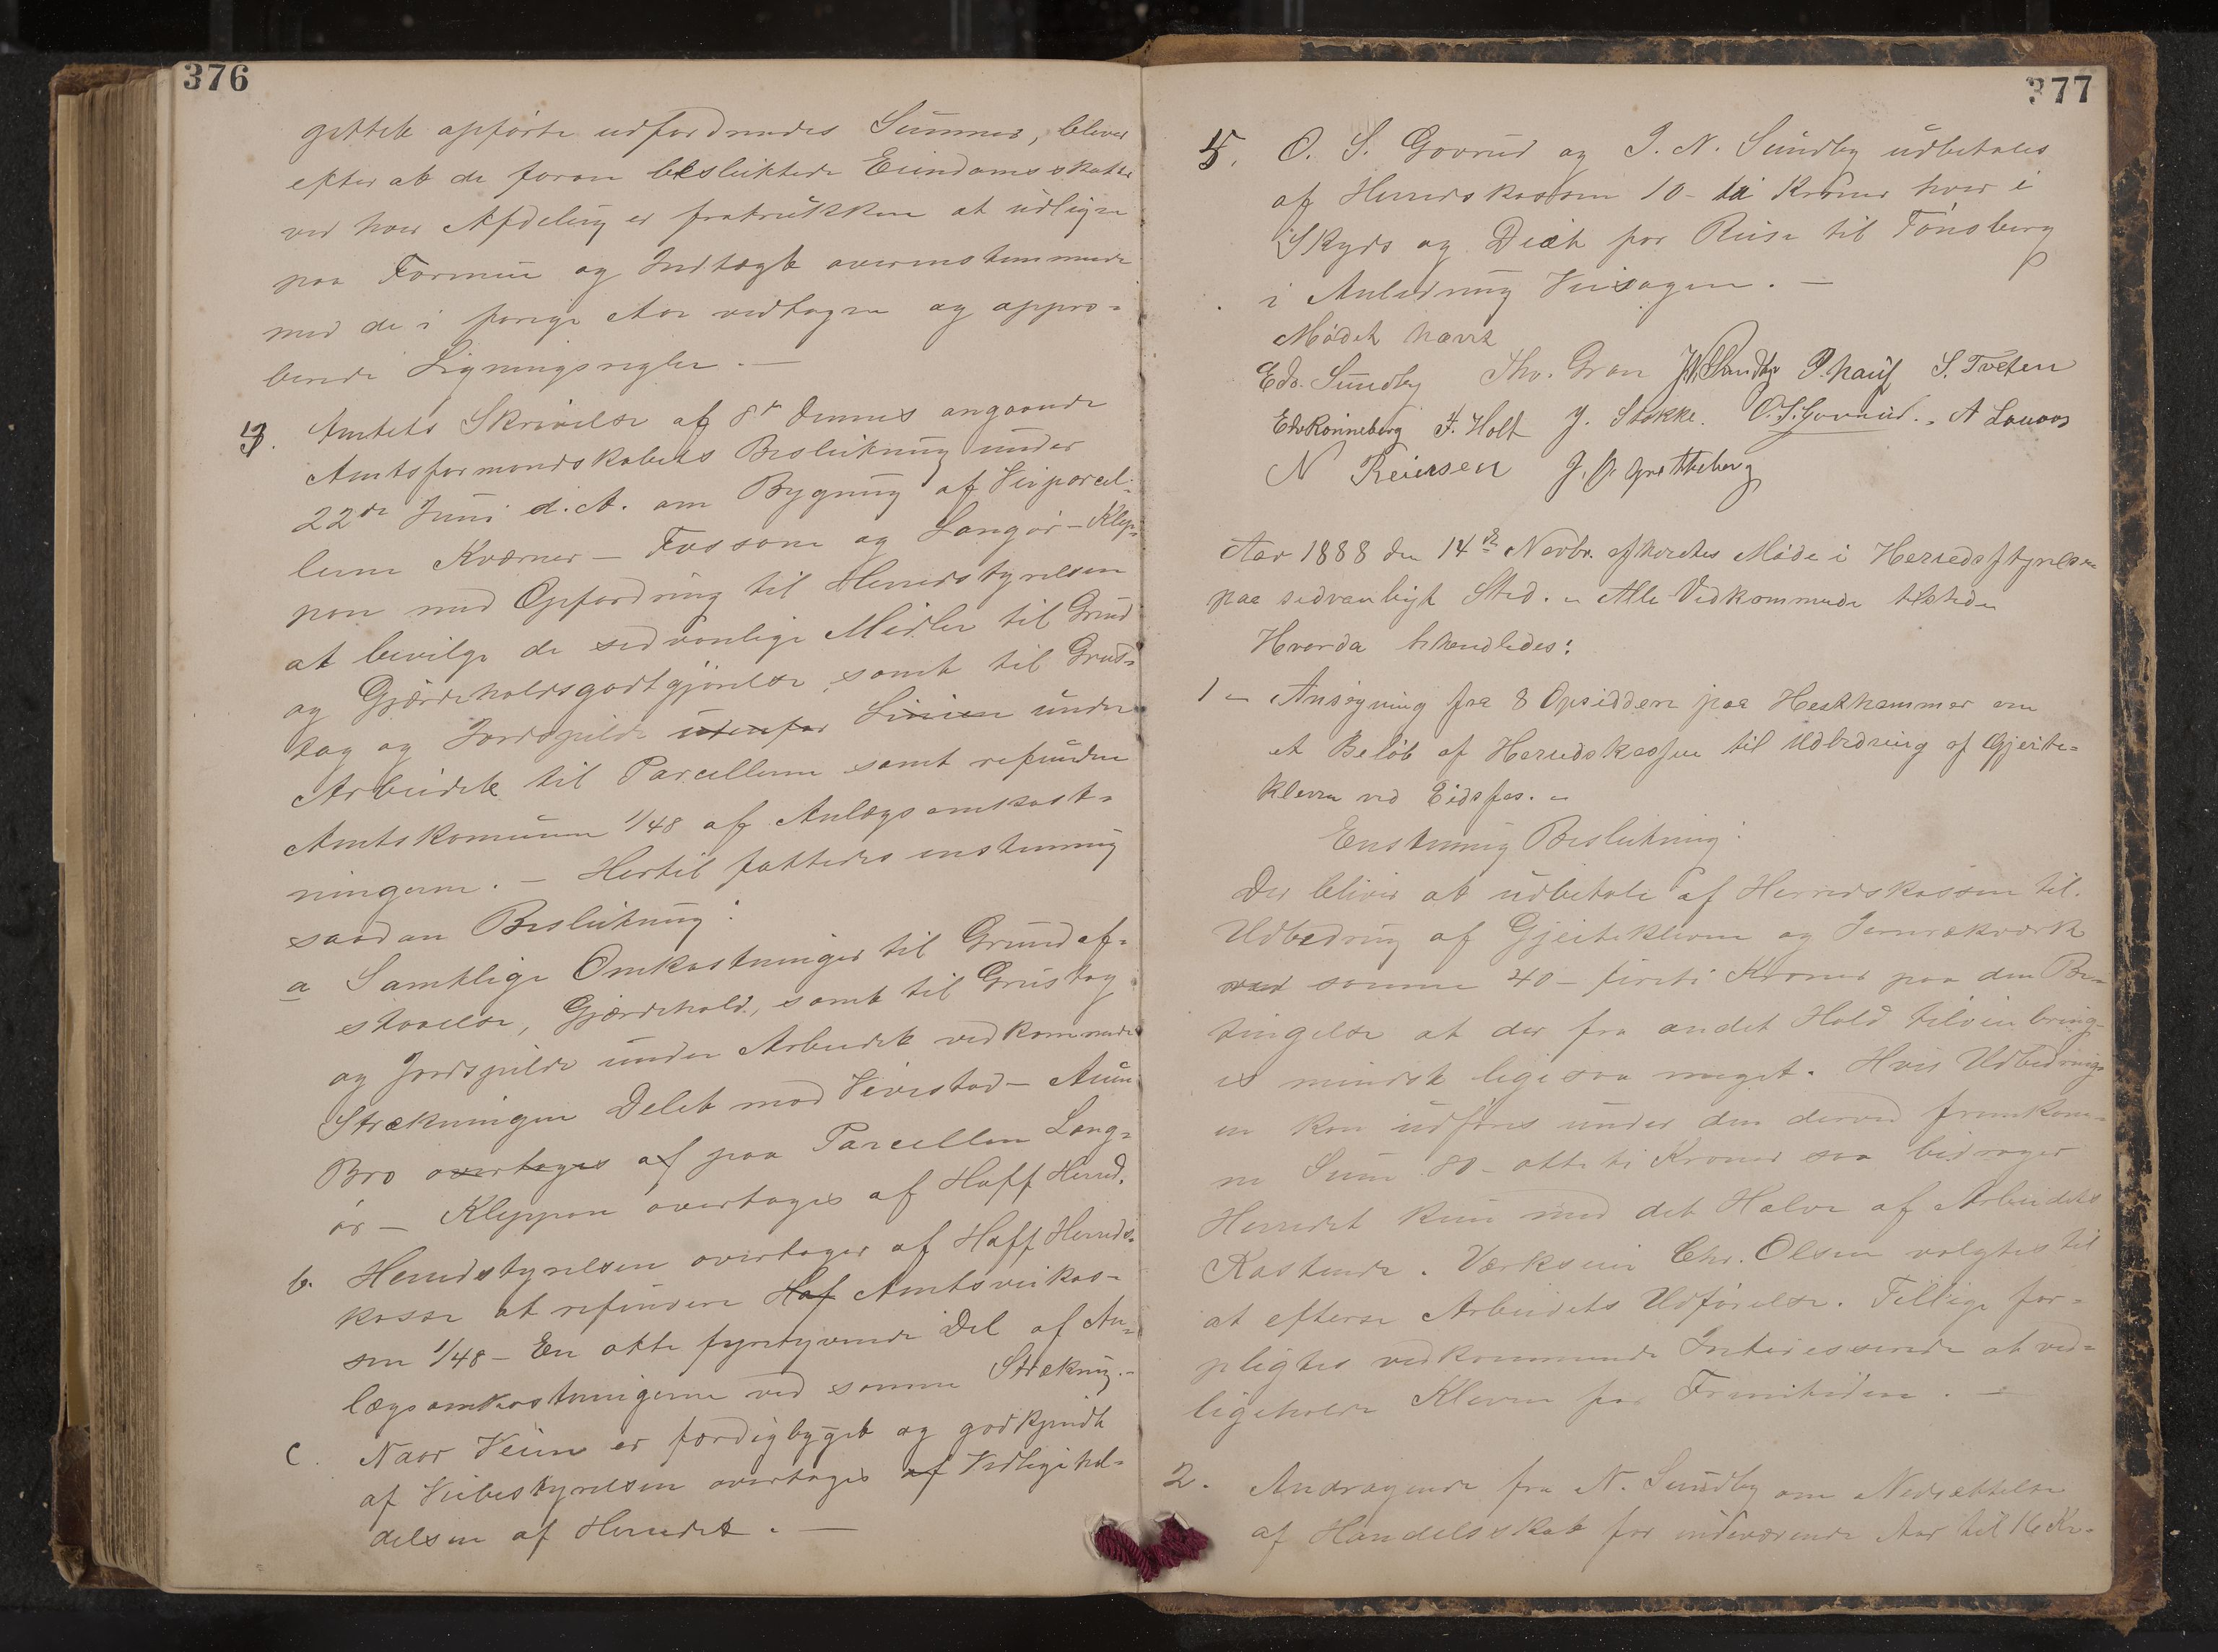 376
gettet opførte udfordrendes Summer, bliver
efter at de foran besluttede Eiendomsskatte
ved hver Afdeling er fratrukken at udligne
paa Formue og Indtægt overensstemmende
med de i forige Aar vedtagne og appro-
berede Ligningsregler. —
3. Amtets Skrivelse af 8de dennes angaaende
Amtsformandskabets Beslutning under
22de Juni d. A. om Bygning af Veiparcel-
lerne Kværner — Fossane og Langør — Klep-
pan med Opfordring til Herredstyrelsen
at bevilge de sedvanlige Midler til Grund
og Gjærdeholdsgodtgjørelse, samt til Grus-
tag og Jordspilde udenfor Linien under
Arbeidet til Parcellerne samt refundere
Amtskomunen 1/48 af Anlægsomkost-
ningerne. — Hertil fattedes enstemmig
saadan Beslutning:
a Samtlige Omkostninger til Grundaf-
staaelse, Gjærdehold, samt til Grustag
og Jordspilde under Arbeidet vedkommende
Strækningen Delet mod Vivestad —
Bro overtages af paa Parcellen Lang-
ør — Kleppan overtages af Hoff Herred.
b. Herredstyrelsen overtager af Hoff Herreds-
kasse at refundere Haf Amtsveikas-
sen 1/48 — En otte fyrretyvende Del af An-
lægsomkostningerne ved samme Strækning. —
c. Naar Veien er færdigbygget og godkjendt
af Veibestyrelsen overtages af Vedligehol-
delsen af Herredet. —
377
5. O. S. Govrud og J. N. Sundby udbetales
af Herredskassen 10 - ti Kroner hver i
Skyds og Diæt for Reise til Tønsberg
i Anledning Veisagen. —
Mødet hævet
Edv. Sundby Thv. Gran J. N. Sundby P. hauf S. Tveten
Edv Rønneberg F. Holt J. Stokke. O. S. Govrud. A Lauaas
N Reiersen J. J. Gretteberg
Aar 1888 den 14de Novbr. afholdtes Møde i Herredsstyrelsen
paa sedvanligt Sted. — Alle Vedkommende tilstede
Hvorda behandledes:
1 — Ansøgning fra 8 Opsiddere paa Hesthammer om
et Beløb af Herredskassen til Udbedring af Gjeite-
kleven ved Eidsfos. —
Enstemmig Beslutning:
Der bliver at udbetale af Herredskassen til
Udbedring af Gjeitekleven og Jernrækværk
ved samme 40 — firti Kroner paa den Be-
tingelse at der fra andet Hold tilveiebring-
es mindst ligesaa meget. Hvis Udbedring-
en kan udføres under den derved fremkom-
ne Sum 80 - otteti Kroner saa bidrager
Herredet kun med det Halve af Arbeidets
Kostende. Værkseier Chr. Olsen valgtes til
at efterse Arbeidets Udførelse. Tillige for-
pligtes vedkommende Interesserede at ved-
ligeholde Kleven for Fremtiden. —
2. Andragende fra N. Sundby om Nedsættelse
af Handelsskat for indeværende Aar til 16 Kr.